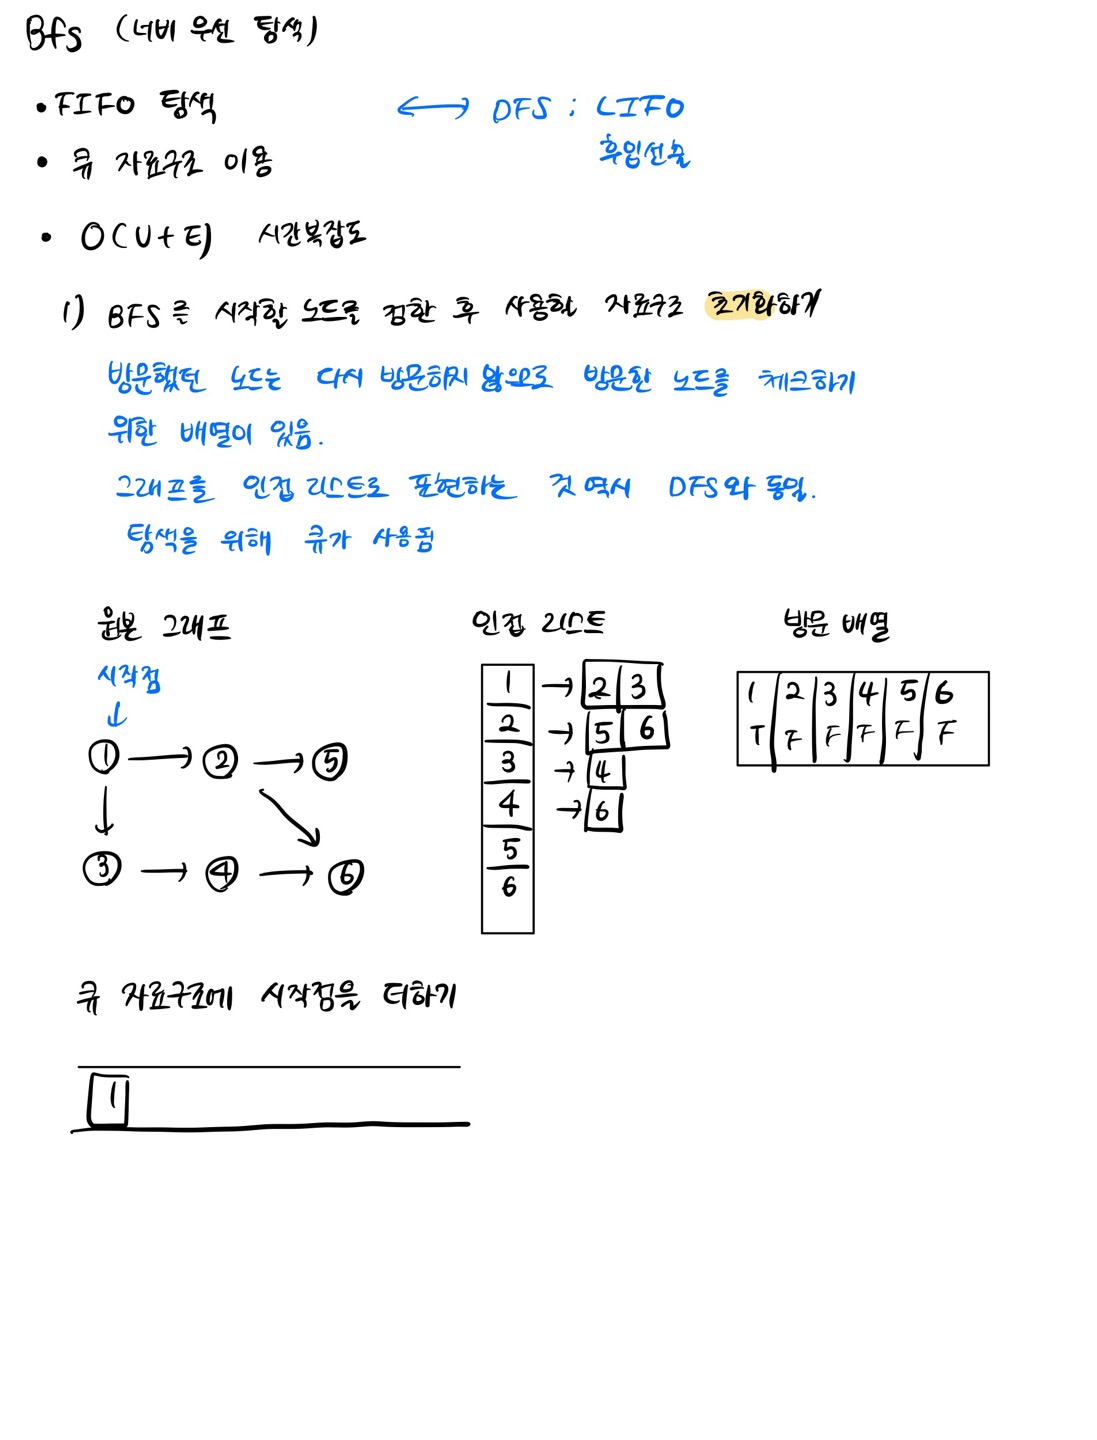 Bfs (너비 우선 탐색)
• FIFO 탐색 ↔ DFS : LIFO
후입선출
• 큐 자료구조 이용
• O(V+E) 시간복잡도
1) BFS를 시작할 노드를 정한 후 사용할 자료구조 초기화하기
방문했던 노드는 다시 방문하지 않으므로 방문한 노드를 체크하기
위한 배열이 있음.
그래프를 인접 리스트로 표현하는 것 역시 DFS와 동일.
탐색을 위해 큐가 사용됨
원본 그래프 인접 리스트 방문 배열
시작점
↓
① → ② → ⑤
↓ ↘
③ → ④ → ⑥
1 → 2 3
2 → 5 6
3 → 4
4 → 6
5
6
1 2 3 4 5 6
T F F F F F
큐 자료구조에 시작점을 더하기
1